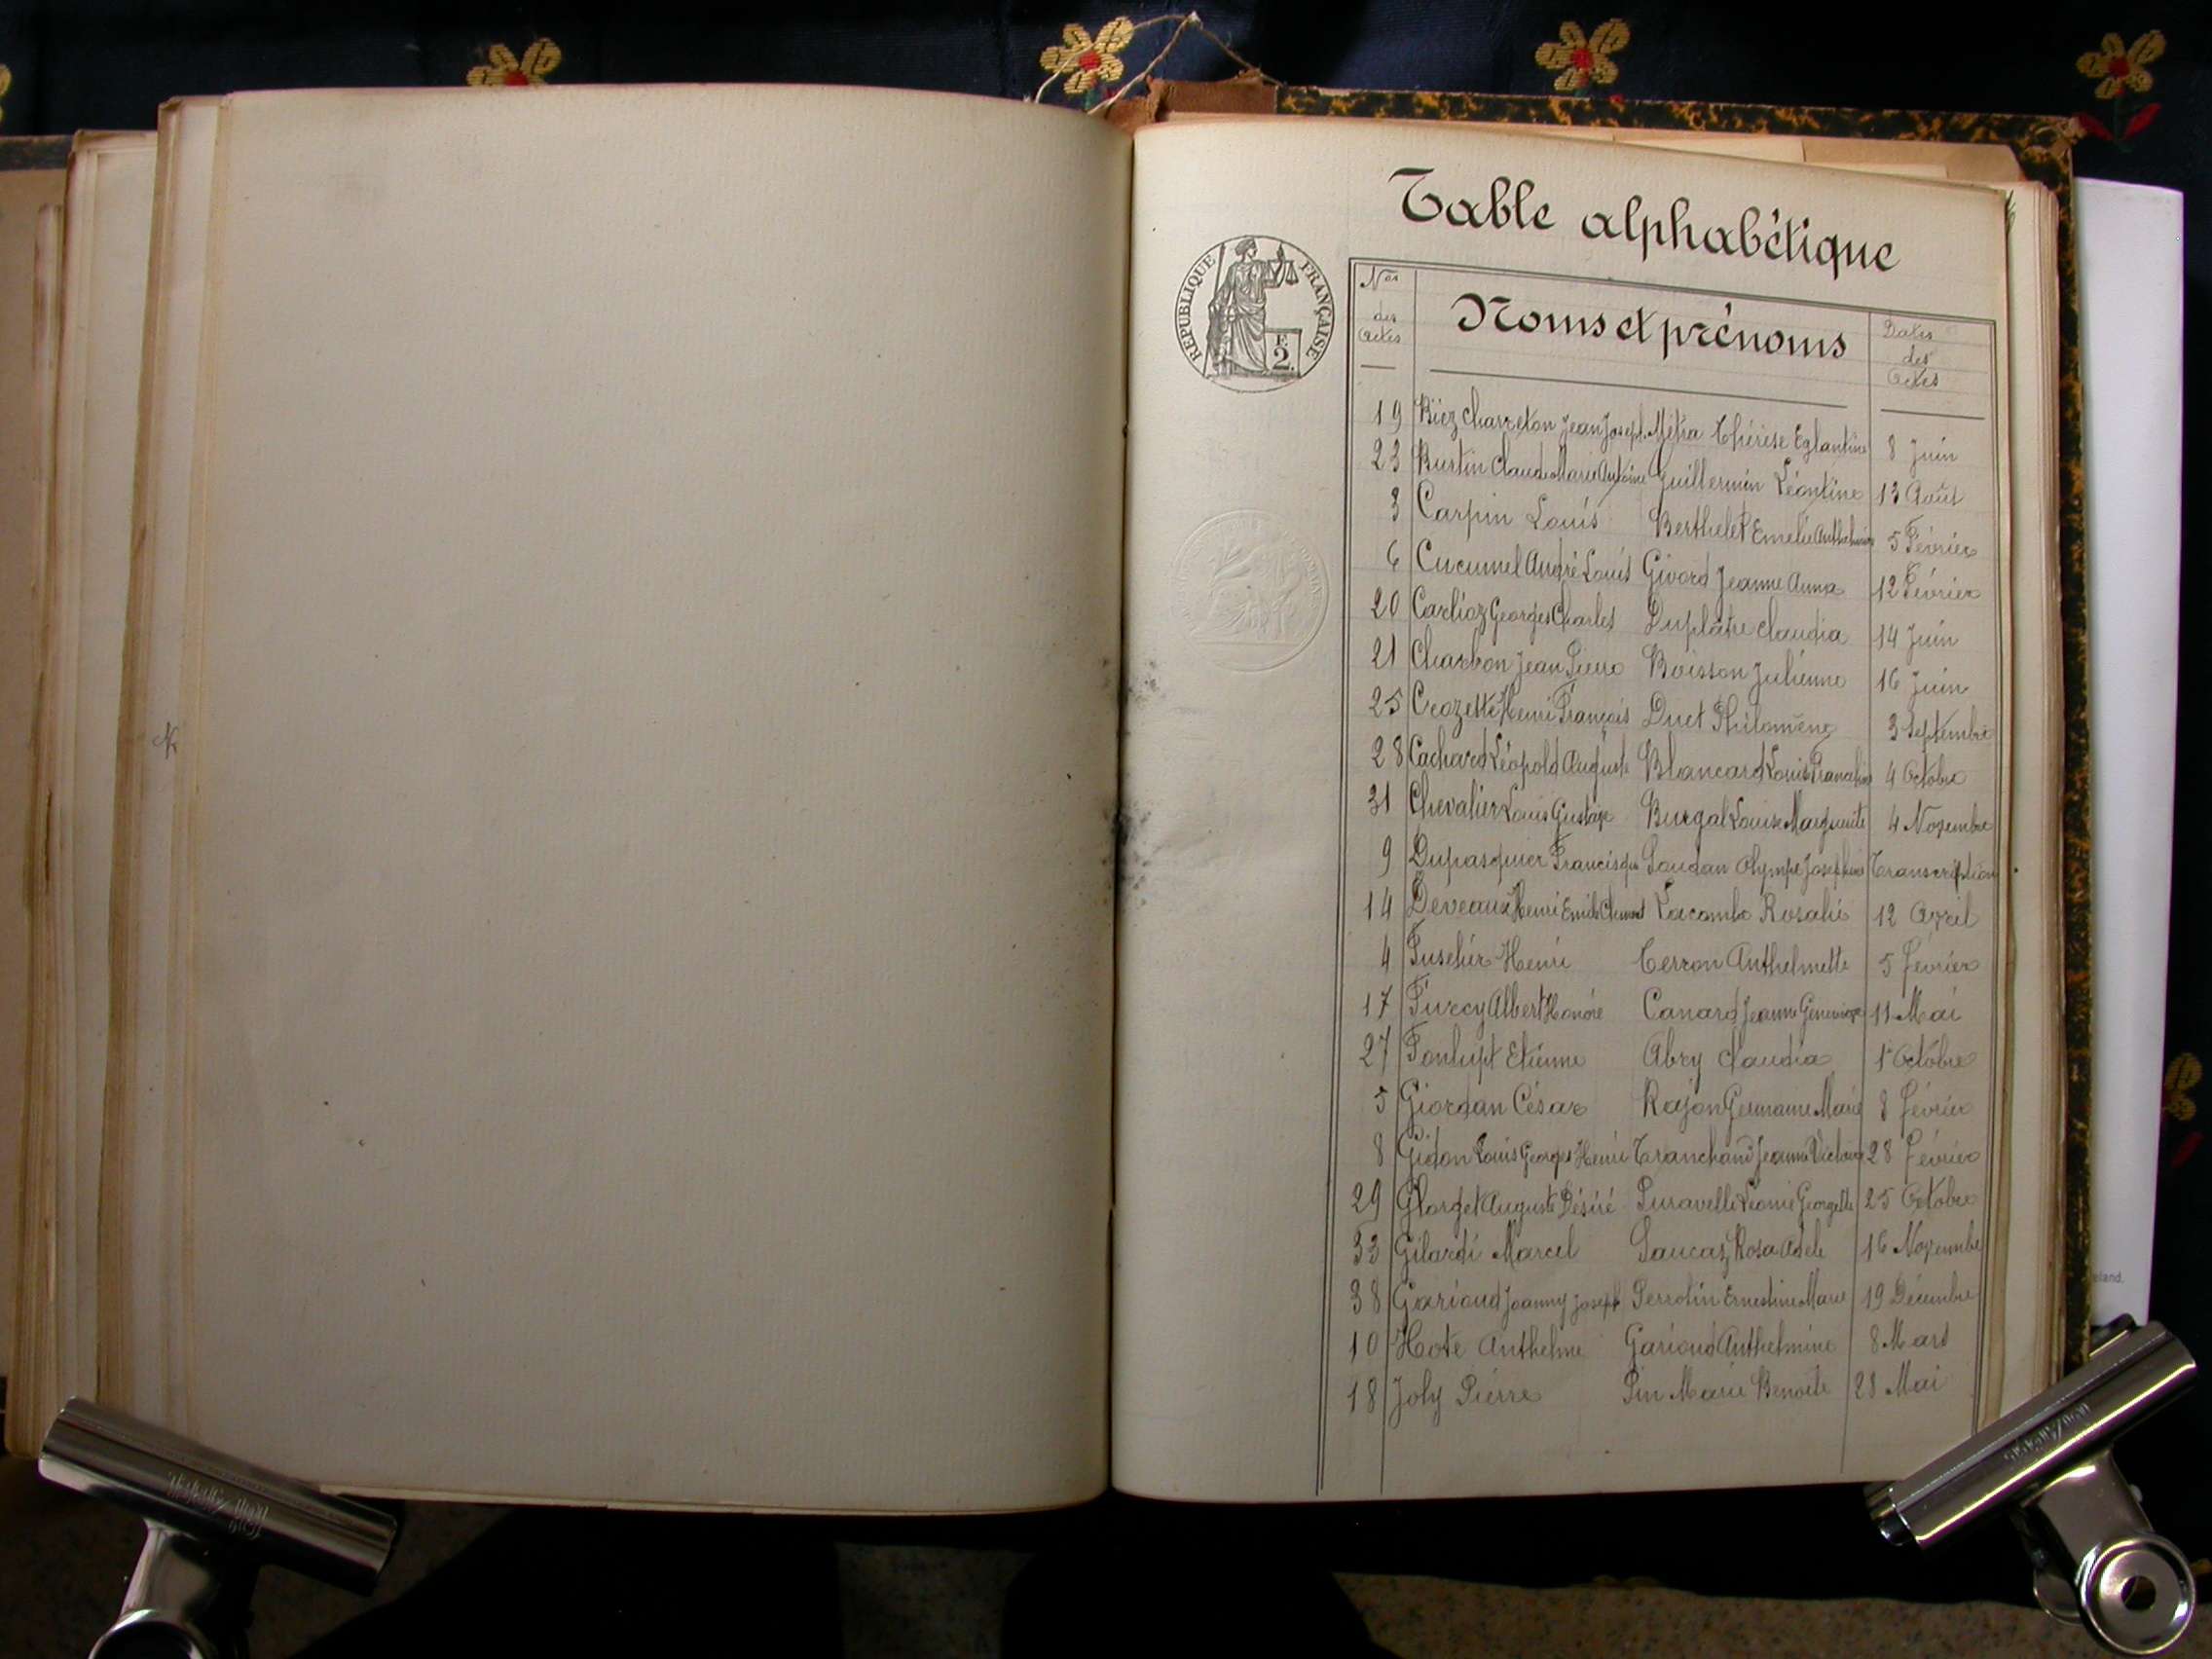 Table alphabétique
RÉPUBLIQUE FRANÇAISE
F. 2.
Nos des Actes
Noms et prénoms
Dates des Actes
19 Biez charreton Jean Joseph Métra Thérèse Eglantine 8 Juin
23 Burtin Claude Marie Antoine Guillermin Léontine 13 Août
3 Carpin Louis Berthelet Emélie 5 Février
6 Cucumel André Louis Givord Jeanne Anna 12 Février
20 Carlioz Georges Charles Duplatre claudia 14 Juin
21 Charbon Jean Pierre Boisson Julienne 16 Juin
25 Crozette Henri François Duct Philomène 3 Septembre
28 Cachard Léopold Auguste Blancard 4 Octobre
31 Chevalier Louis Gustave Burgal Louise Marguerite 4 Novembre
9 Dupasquier Francisque Laudan Olympe Joséphine Transcription
14 Deveaux Henri Emile Clément Lacombe Rosalie 12 Avril
4 Fuselier Henri Terron Anthelmette 5 février
17 Furcy Albert Honoré Canard Jeanne Geneviève 11 Mai
27 Fonlupt Etienne Abry claudia 1 Octobre
5 Giordan César Rajon Germaine Marie 8 février
8 Gidon Louis Georges Henri Tranchand Jeanne Victoire 28 Février
29 Glorget Auguste Désiré Puravelle Léonie Georgette 25 Octobre
33 Gilardi Marcel Saucaz Rosa Adèle 16 Novembre
38 Garioud Joanny Joseph Serrotin Ernestine Marie 19 Décembre
10 Hote Anthelme Garioud Anthelmine 8 Mars
18 Joly Pierre Pin Marie Benoite 28 Mai